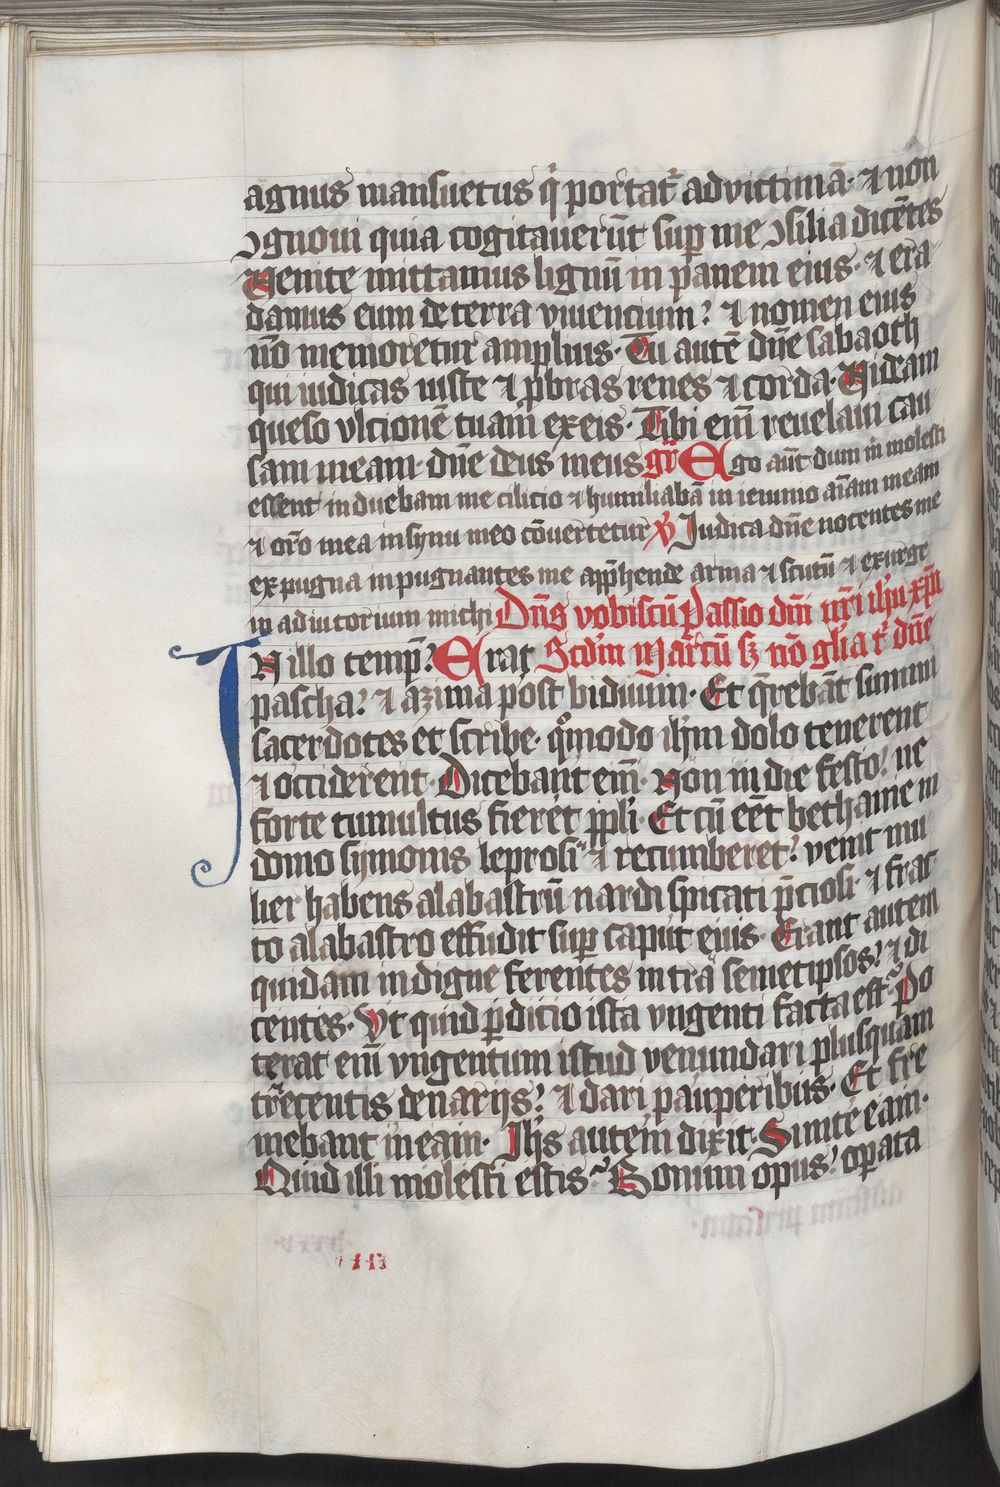 agnus mansuetus q̇ portat᷑ ad victimā· ⁊ non
ↄgnoui quia cogitauerūt sup̱ me ↄsilia dicētes
Venite mittamus lignū in panem eius· ⁊ era
damus eum de terra viuencium? ⁊ nomen eius
nō memoretur amplius· Tu autē dn̄e sabaoth
qui iudicas iuste ⁊ ꝓbras renes ⁊ corda· Videam
queso vlcionē tuam ex eis· Tibi em̄ reuelaui cau
sam meam· dn̄e deus meus gr̄ Ego aūt dum m̄ molesti
essent induebam me cilicio ⁊ humiliabā in ieiunio aīam meam
⁊ or̄o mea in synu meo cōuertetur ℣ Judica dn̄e nocentes me
expugna inpugnantes me app̄hende arma ⁊ scutū ⁊ exurge
in adiutorium michi Dn̄s vobiscū Passio dn̄i nr̄i ih̄u xp̄i
IN illo temp̱? Erat Scd̄m Marcū sꝫ nō gl̄ia t᷑ dn̄e
pascha? ⁊ azima post biduum· Et q̄rebāt summi
sacerdotes et scribe· qͦmodo ih̄m dolo tenerent
⁊ occiderent· Dicebant em̄· Non in die festo? ne
forte tumultus fieret ppl̄i· Et cū eēt bethanie in
domo symonis leprosi ⁊ recumberet? venit mu
lier habens alabastrū nardi spicati p̄ciosi· ⁊ frac
to alabastro effudit sup̱ caput eius· Erant autem
quidam indigne ferentes intra semetipsos? ⁊ di
centes· Vt quid ꝑdicio ista vngenti facta est? Po
terat em̄ vngentum istud venundari plusquam
trecentis denarijs? ⁊ dari pauperibus· Et fre
mebant in eam· Ih̄s autem dixit· Sinite eam·
Quid illi molesti estis? Bonum opus? oꝑata